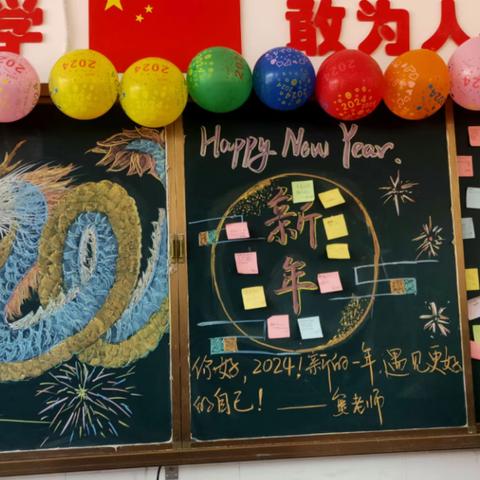 学
敢为人
2024
2024
2024
2024
Happy New Year.
新
年
你好,2024!新的一年,遇见更好
的自己!——熊老师